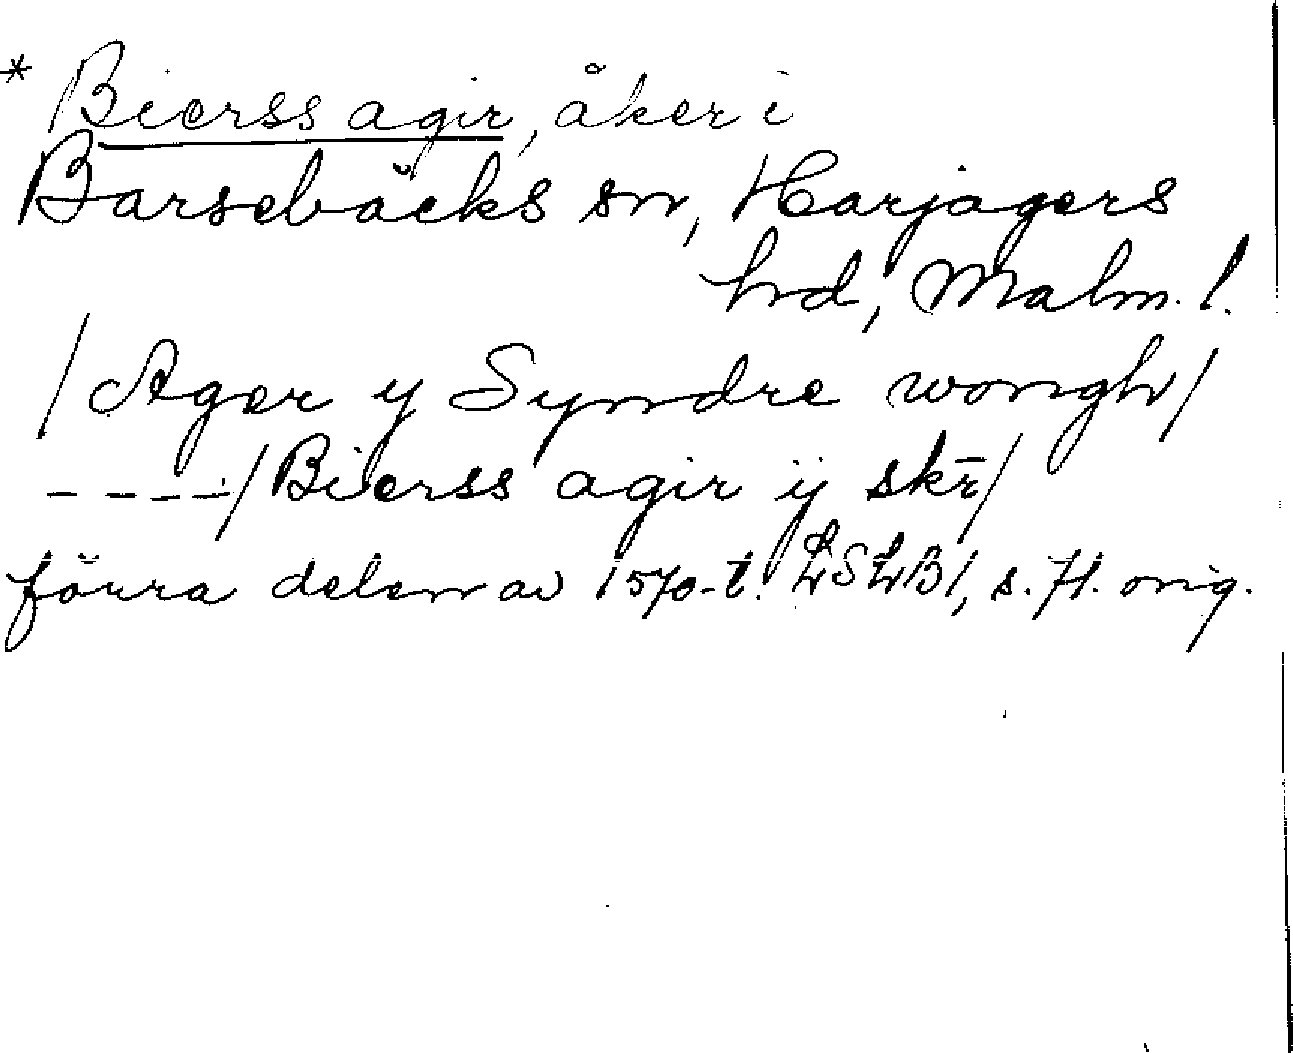 * Bierss agir, åker i
Barsebäcks sn, Harjagers
hrd, Malm. l.
/Ager y Syndre wongh/
----/Bierss agir ij skr̄/
förra delen av 1570-t. LSLB1, s. 71. orig.